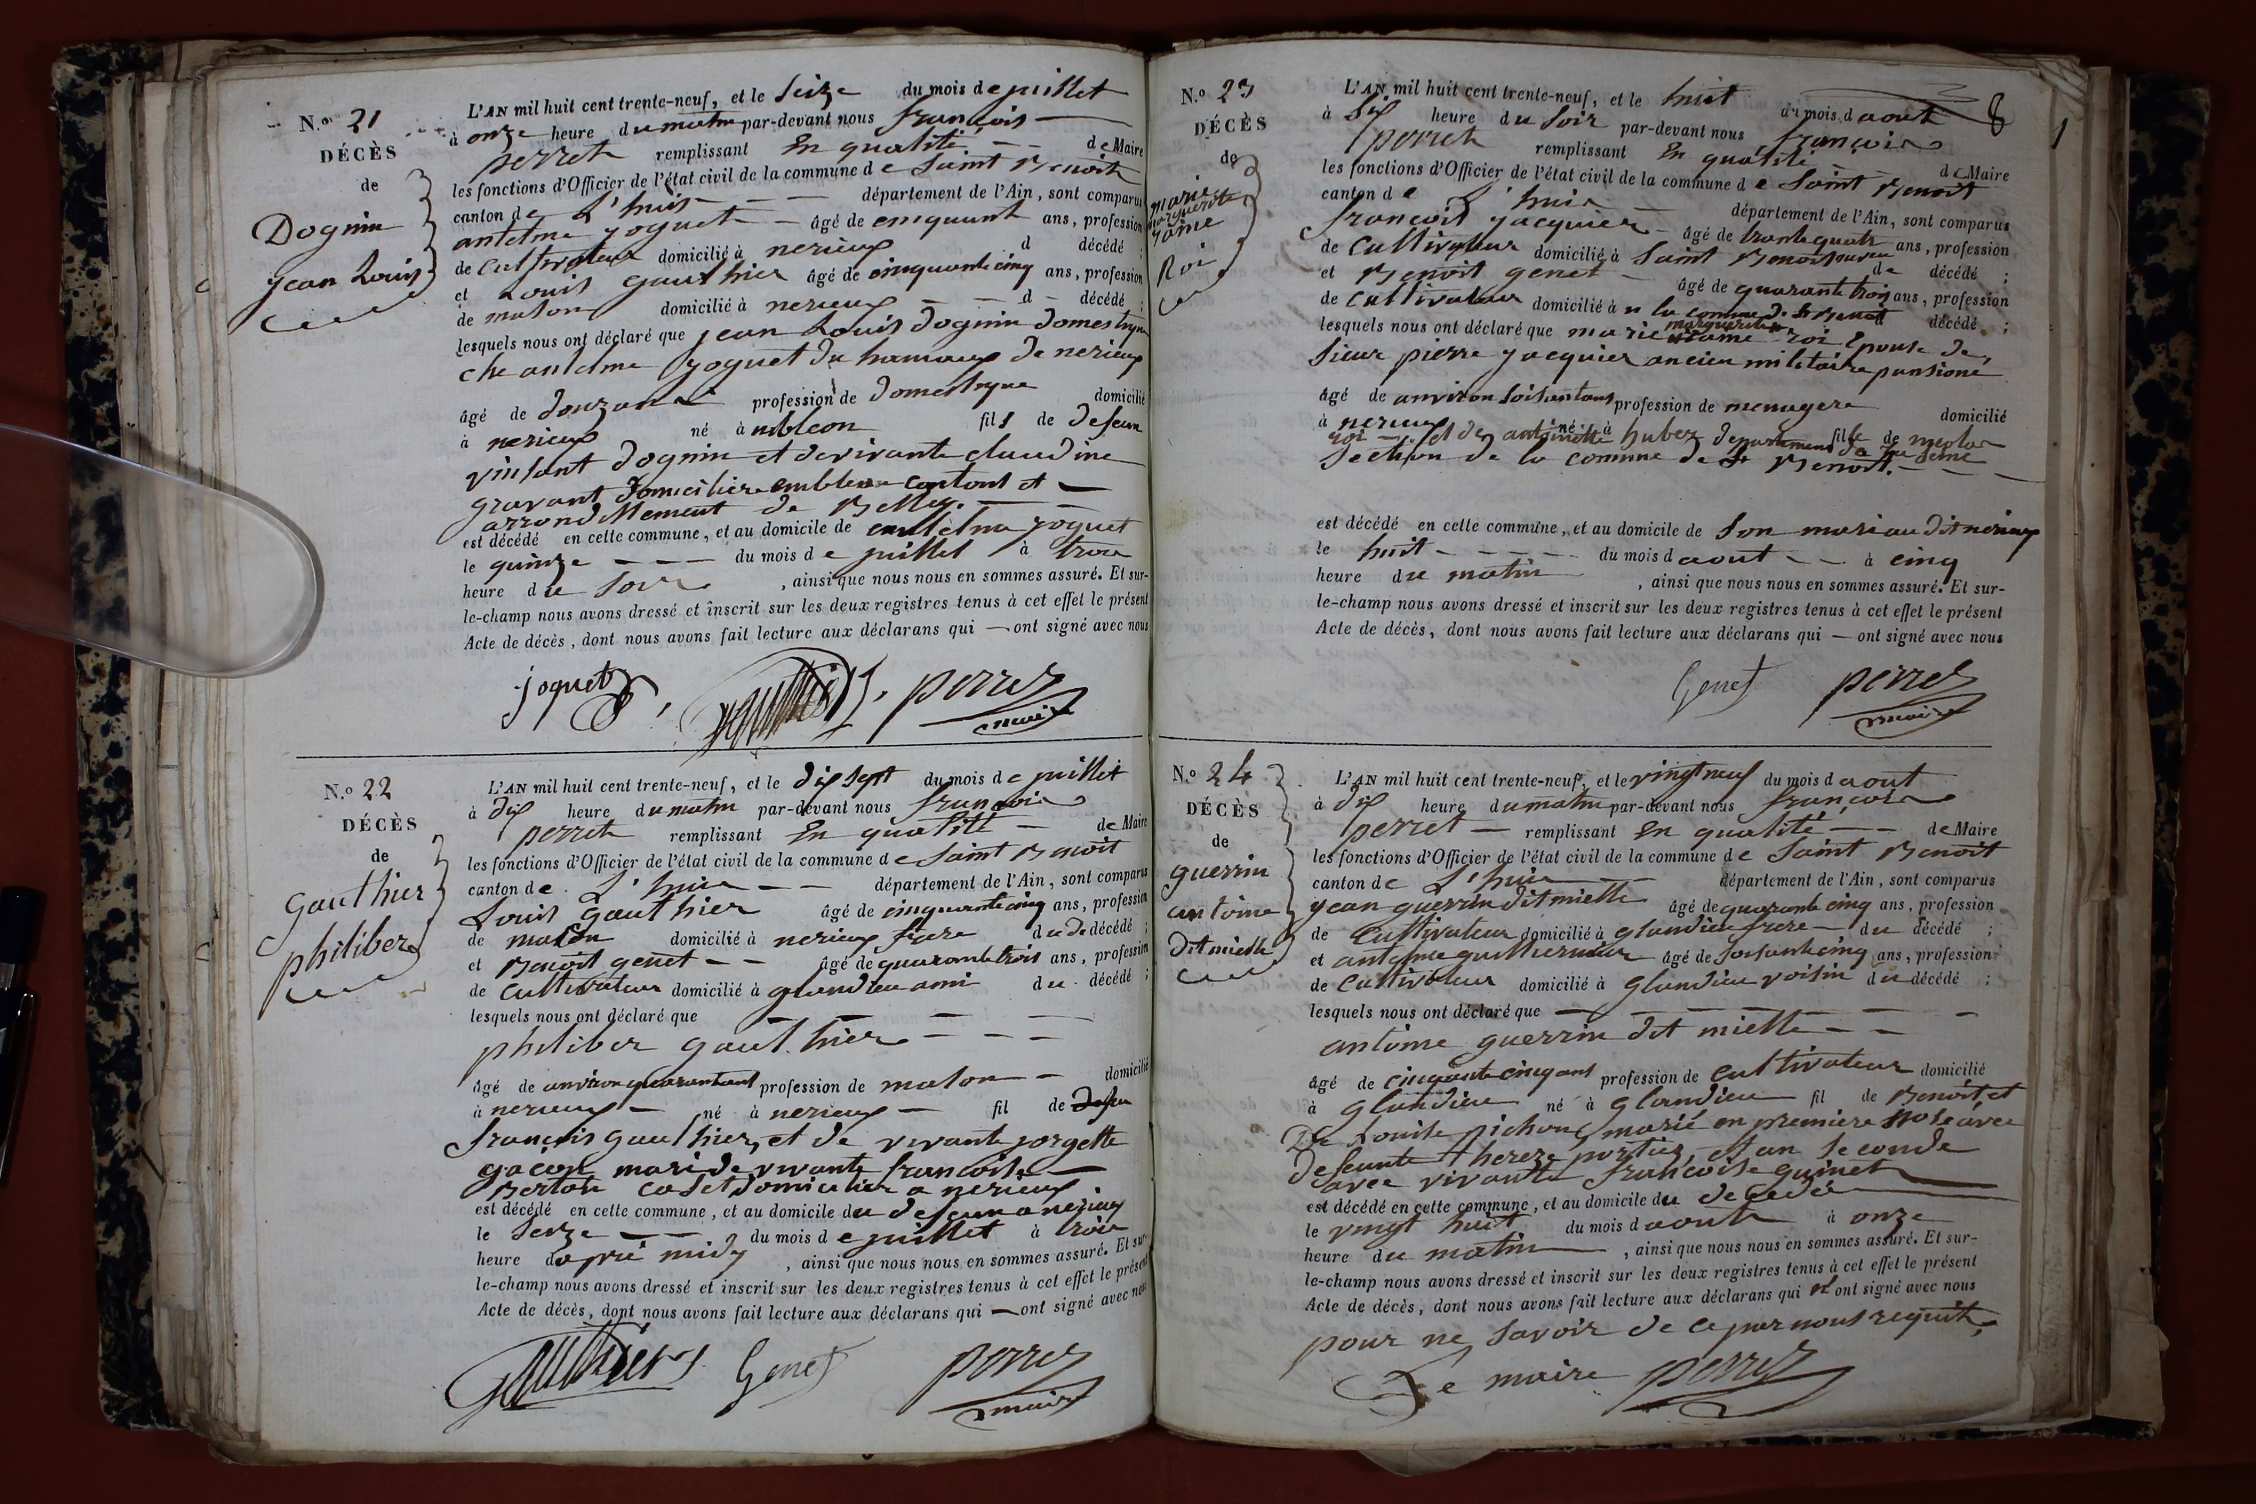 N.o 21
DÉCÈS
de
Dognin
jean Louis
L'AN mil huit cent trente-neuf, et le Seize du mois de juillet
à onze heure du matin par-devant nous françois
perret remplissant En qualité de Maire
les fonctions d'Officier de l'état civil de la commune de Saint Benoit
canton de L'huis département de l'Ain, sont comparus
antelme joguet âgé de cinquant ans, profession
de Cultivateur domicilié à nerieux d décédé ;
et Louis gauthier âgé de cinquante cinq ans, profession
de mason domicilié à nerieux d décédé ;
lesquels nous ont déclaré que jean Louis dognin domestique
che antelme joguet du hamaux de nerieux
âgé de douzans profession de domestique domicilié
à nerieux né à fils de defeun
vinsant dognin et de vivante claudine
gravant domicilie canton et
arrondissement de Belley.
est décédé en cette commune, et au domicile de antelme joguet
le quinze du mois de juillet à trois
heure du soir , ainsi que nous nous en sommes assuré. Et sur-
le-champ nous avons dressé et inscrit sur les deux registres tenus à cet effet le présent
Acte de décès, dont nous avons fait lecture aux déclarans qui — ont signé avec nous
joguet gauthier perret
maire
N.o 22
DÉCÈS
de
Gauthier
philiber
L'AN mil huit cent trente-neuf, et le dix sept du mois de juillet
à dix heure du matin par-devant nous françois
perret remplissant En qualité de Maire
les fonctions d'Officier de l'état civil de la commune de Saint Benoit
canton de L'huis département de l'Ain, sont comparus
Louis gauthier âgé de cinquante cinq ans, profession
de mason domicilié à nerieux frere du décédé ;
et Benoit genet âgé de quarante trois ans, profession
de Cultivateur domicilié à glandieu ami du décédé ;
lesquels nous ont déclaré que
philiber gauthier
âgé de anviron quarantans profession de mason domicilié
à nerieux né à nerieux fil de
françois gauthier, et de vivante jorgette
gacon mari de vivante francoise
Berton domicilier a nerieux
est décédé en cette commune, et au domicile du defeun a nerieux
le Seize du mois de juillet à trois
heure daprié midy , ainsi que nous nous en sommes assuré. Et sur-
le-champ nous avons dressé et inscrit sur les deux registres tenus à cet effet le présent
Acte de décès, dont nous avons fait lecture aux déclarans qui — ont signé avec nous
Gauthier Genet perret
maire
8
N.o 23
DÉCÈS
de
marie
marguerite
Roi
L'AN mil huit cent trente-neuf, et le huit du mois d aout
à Six heure du Soir par-devant nous françois
perret remplissant En qualité de Maire
les fonctions d'Officier de l'état civil de la commune de Saint Benoit
canton de L'huis département de l'Ain, sont comparus
françois jacquier âgé de trante quatr ans, profession
de Cultivateur domicilié à Saint Benoit de décédé ;
et Benoit genet âgé de quarante trois ans, profession
de Cultivateur domicilié à la commune de St Benoit décédé ;
lesquels nous ont déclaré que marie marguerite roi Epouse de
sieur pierre jacquier ancien militaire pansioné
âgé de anviron soisantans profession de menagere domicilié
à nerieux né à fille de
roi et de antoinette
section de la comune de St Benoit.
est décédé en cette commune, et au domicile de Son mari au dit nerieux
le huit du mois d aout à cinq
heure du matin , ainsi que nous nous en sommes assuré. Et sur-
le-champ nous avons dressé et inscrit sur les deux registres tenus à cet effet le présent
Acte de décès, dont nous avons fait lecture aux déclarans qui — ont signé avec nous
Genet perret
maire
N.o 24
DÉCÈS
de
guerrin
antoine
dit miette
L'AN mil huit cent trente-neuf, et le vingt neuf du mois d aout
à dix heure du matin par-devant nous françois
perret remplissant En qualité de Maire
les fonctions d'Officier de l'état civil de la commune de Saint Benoit
canton de L'huis département de l'Ain, sont comparus
jean guerrin dit miette âgé de quarante cinq ans, profession
de Cultivateur domicilié à glandieu frere du décédé ;
et antelme guillermier âgé de soisante cinq ans, profession
de Cultivateur domicilié à Glandieu voisin du décédé ;
lesquels nous ont déclaré que
antoine guerrin dit miette
âgé de cinquante cinq ans profession de Cultivateur domicilié
à Glandieu né à Glandieu fil de Benoit et
De Louise pichon, marié en premiere avec
defeunte thereze portier, et an seconde
avec vivante francoise guinet
est décédé en cette commune, et au domicile du décedée
le vingt huit du mois d aout à onze
heure du matin , ainsi que nous nous en sommes assuré. Et sur-
le-champ nous avons dressé et inscrit sur les deux registres tenus à cet effet le présent
Acte de décès, dont nous avons fait lecture aux déclarans qui ont signé avec nous
pour ne savoir de ce par nous requit.
Le maire perret